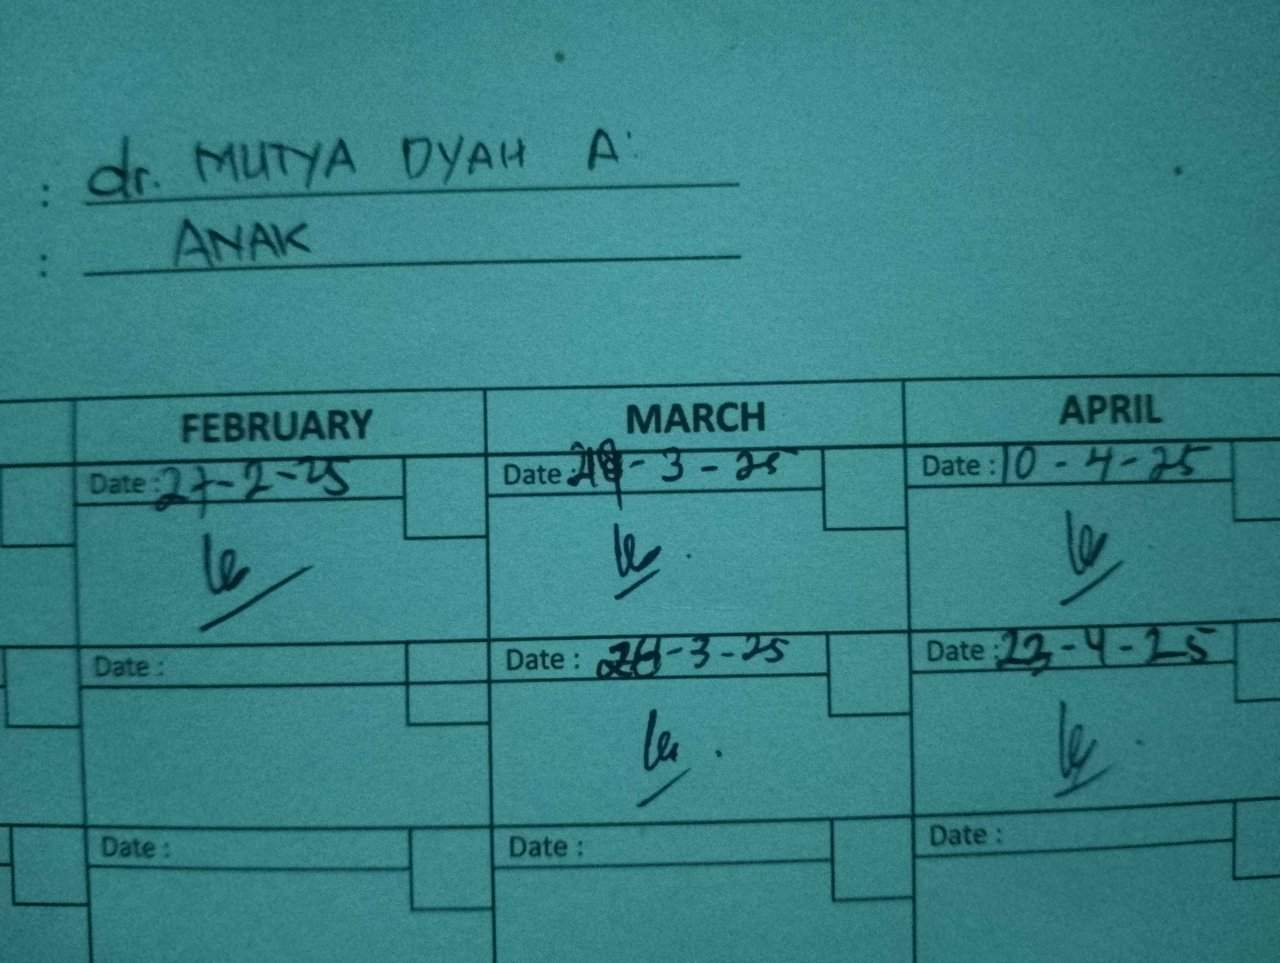 : dr. MUTYA DYAH A.
: ANAK
FEBRUARY MARCH APRIL
Date : 27-2-25 Date : -3-25 Date : 10-4-25
Date : Date : -3-25 Date : 23-4-25
Date : Date : Date :